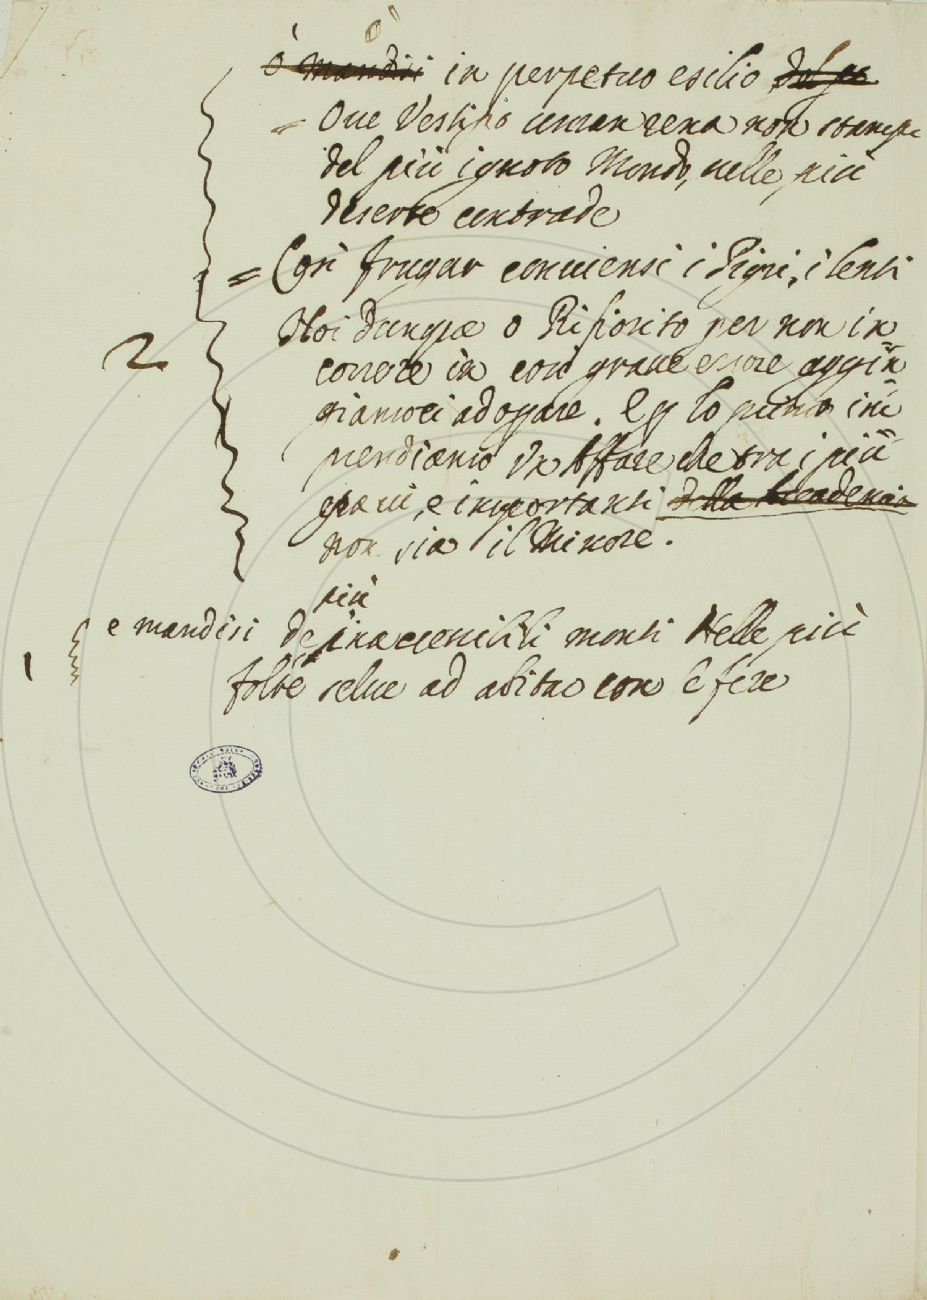 ò
ò mandisi in perpetuo esilio del pe
= Oue Vestigio uman rena non stampi
del più ignoto Mondo, nelle più
deserte contrade
= Così frugar conuiensi i Pigri, i lenti
2
Noi dunque o Rifiorito per non in
correre in così graue errore aggiun
giamoci ad oprare. E p lo primo im
prendiamo un Affare che tra i più
graui, e importanti della Accademia
non sia il Minore.
più
1 e mandisi de inaccessibili monti Nelle più
folte selue ad abitar con le fere